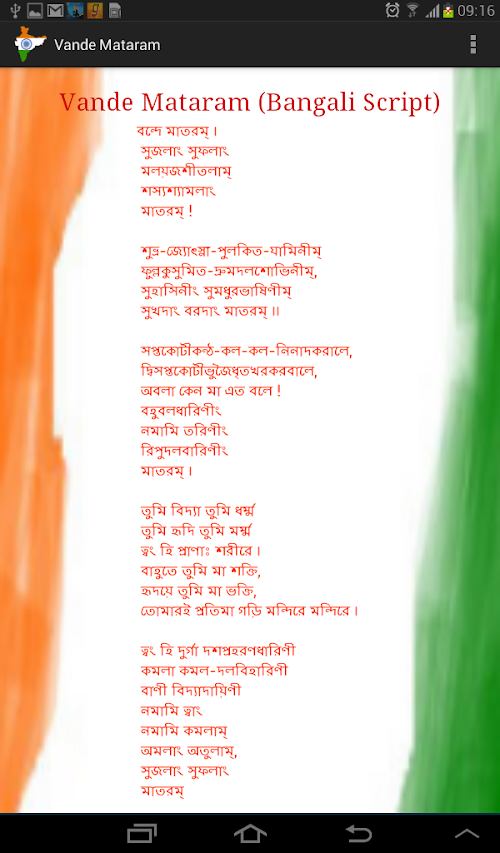 09:16
Vande Mataram
Vande Mataram (Bangali Script)
বন্দে মাতরম্ ।
সুজলাং সুফলাং
মলয়জশীতলাম্
শস্যশ্যামলাং
মাতরম্ !
শুভ্র-জ্যোৎস্না-পুলকিত-যামিনীম্
ফুল্লকুসুমিত-দ্রুমদলশোভিনীম্,
সুহাসিনীং সুমধুরভাষিণীম্
সুখদাং বরদাং মাতরম্ ৷৷
সপ্তকোটীকন্ঠ-কল-কল-নিনাদকরালে,
দ্বিসপ্তকোটীভুজৈধৃতখরকরবালে,
অবলা কেন মা এত বলে !
বহুবলধারিণীং
নমামি তরিণীং
রিপুদলবারিণীং
মাতরম্ ৷
তুমি বিদ্যা তুমি ধর্ম্ম
তুমি হৃদি তুমি মর্ম্ম
ত্বং হি প্রাণাঃ শরীরে ৷
বাহুতে তুমি মা শক্তি,
হৃদয়ে তুমি মা ভক্তি,
তোমারই প্রতিমা গড়ি মন্দিরে মন্দিরে ৷
ত্বং হি দুর্গা দশপ্রহরণধারিণী
কমলা কমল-দলবিহারিণী
বাণী বিদ্যাদায়িণী
নমামি ত্বাং
নমামি কমলাম্
অমলাং অতুলাম্,
সুজলাং সুফলাং
মাতরম্